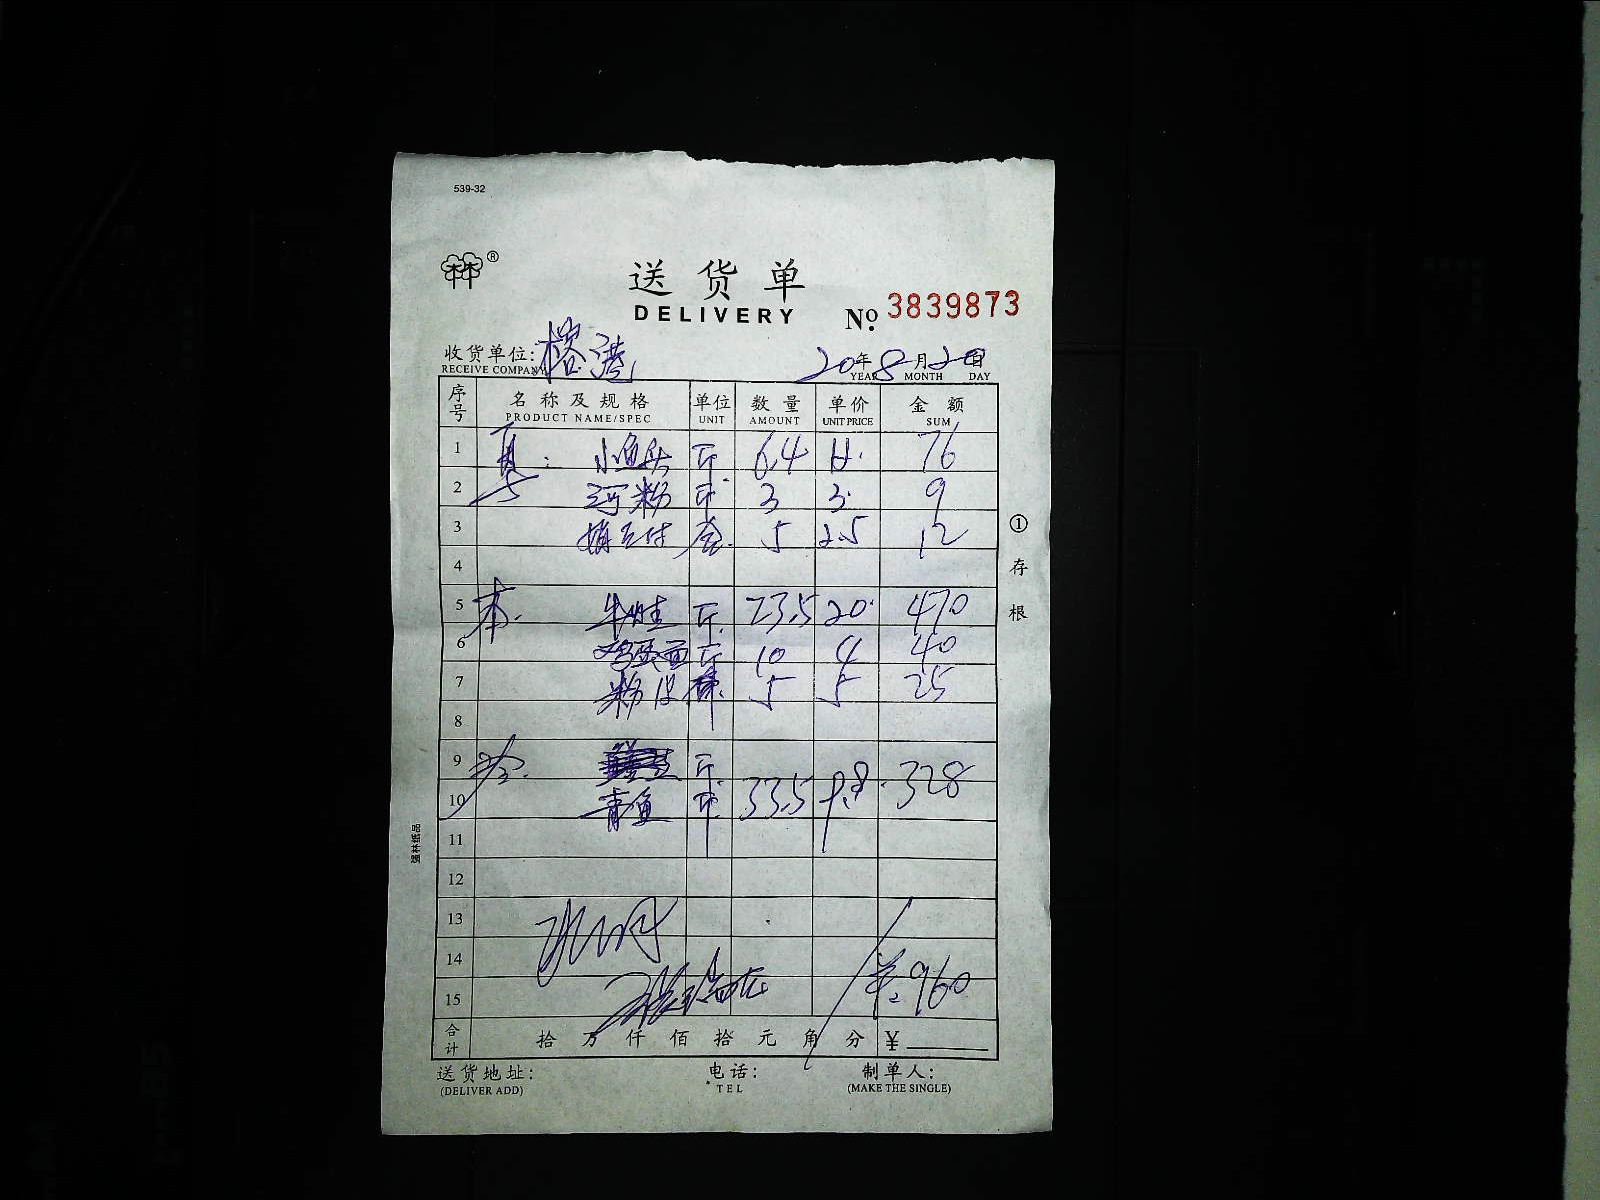 539-32
林®
送货单
DELIVERY
No. 3839873
收货单位: 榕港
RECEIVE COMPANY
20年8月20日
YEAR MONTH DAY
序号 名称及规格 单位 数量 单价 金额
PRODUCT NAME/SPEC UNIT AMOUNT UNIT PRICE SUM
1 小鱼头 斤 6.4 12. 76
2 河粉 斤 3 3. 9
3 盒 5 2.5 12
4
5 牛蛙 斤 23.5 20. 470
6 鸡蛋面 斤 10 4 40
7 粉皮 5 5 25
8
9 斤
10 青鱼 斤 33.5 9.8 328
11
12
13
14
15 羊960
合计 拾 万 仟 佰 拾 元 角 分 ¥
①存根
强林纸品
送货地址: 电话: 制单人:
(DELIVER ADD) TEL (MAKE THE SINGLE)